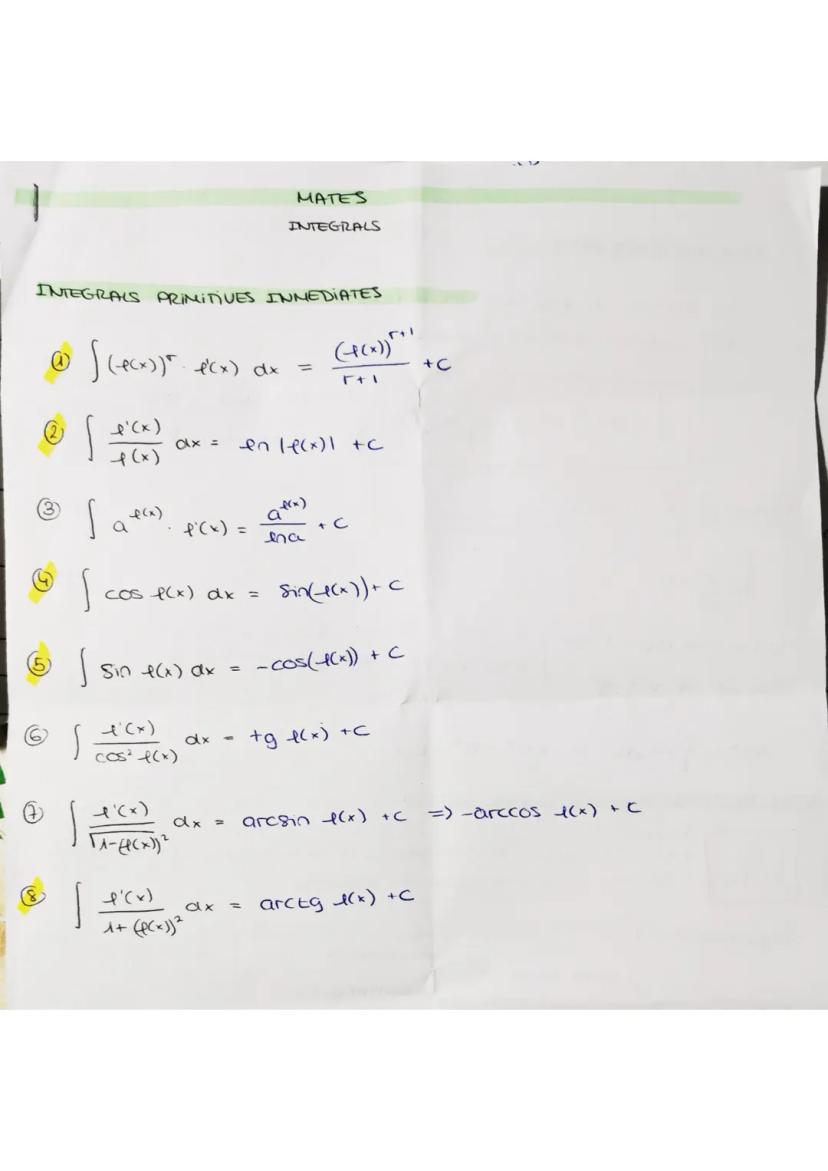 MATES
INTEGRALS
INTEGRALS PRIMITIVES INMEDIATES
① ∫ (f(x))^r · f'(x) dx = (f(x))^(r+1) / (r+1) + C
② ∫ f'(x) / f(x) dx = ln |f(x)| + C
③ ∫ a^f(x) · f'(x) = a^f(x) / ln a + C
④ ∫ cos f(x) dx = sin(f(x)) + C
⑤ ∫ sin f(x) dx = -cos(f(x)) + C
⑥ ∫ f'(x) / cos² f(x) dx = tg f(x) + C
⑦ ∫ f'(x) / √(1-(f(x))²) dx = arcsin f(x) + C => -arccos f(x) + C
⑧ ∫ f'(x) / (1+(f(x))²) dx = arctg f(x) + C